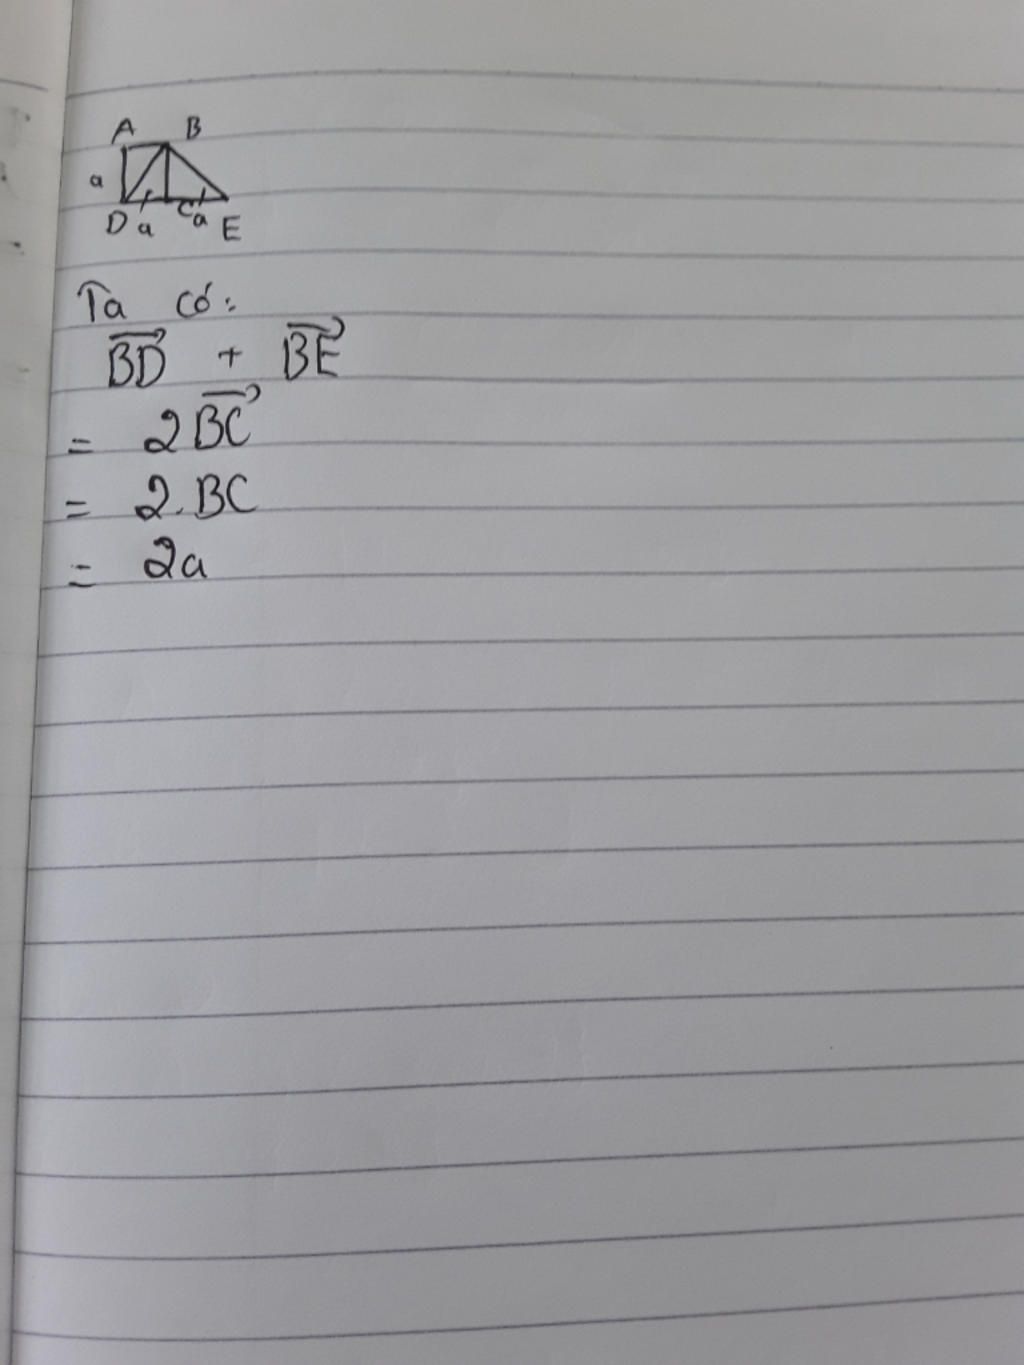 A B
a
D a C a E
Ta có:
$\overrightarrow{BD} + \overrightarrow{BE}$
= $2\overrightarrow{BC}$
= 2.BC
= 2a